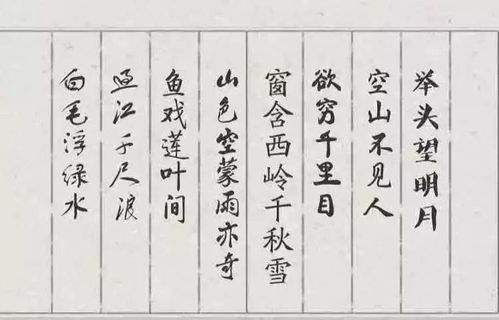 举头望明月
空山不见人
欲穷千里目
窗含西岭千秋雪
山色空蒙雨亦奇
鱼戏莲叶间
过江千尺浪
白毛浮绿水